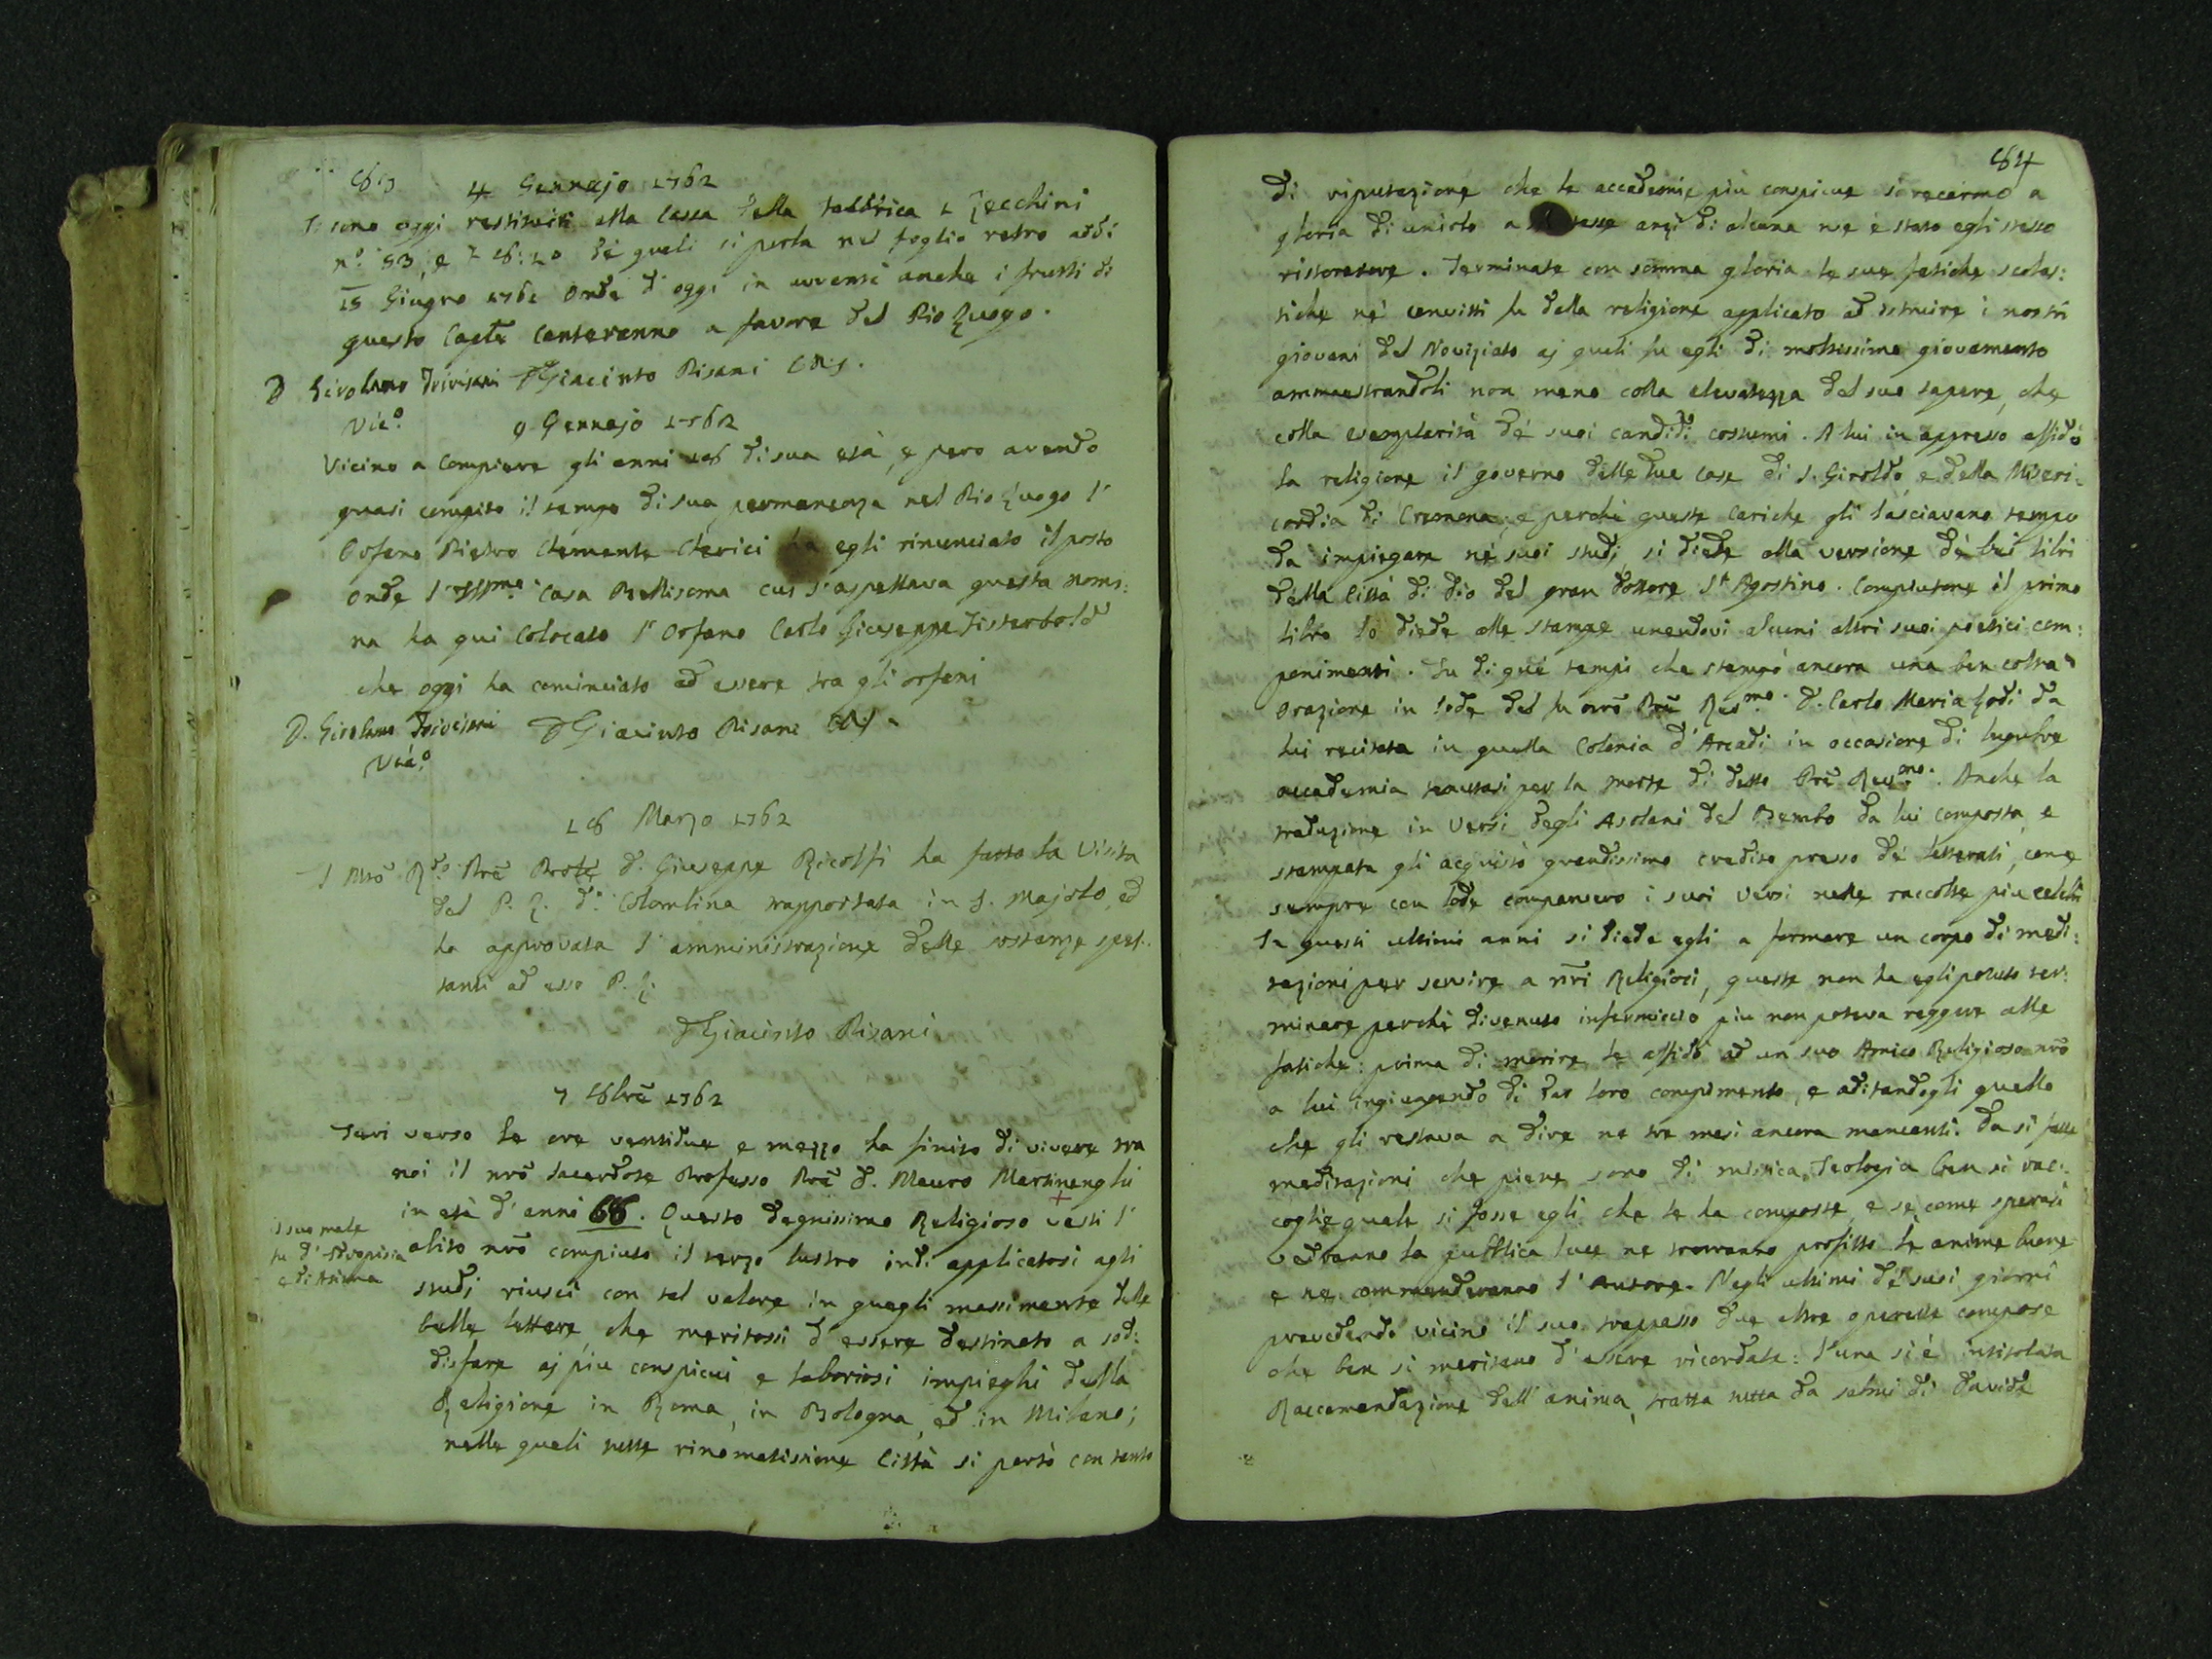 83
4 Gennajo 1762
Si sono oggi restituiti alla Cassa della Fabbrica L Zecchini
n.° 53, e L 8:10 de quali si parla nel foglio retro addi
15 Giugno 1761 onde d'oggi in avvenire anche i frutti di
questo Capitle Canteranno a favore del Pio Luogo.
D Girolamo Trivisani D Giacinto Pisani CRS.
Vice.°
9 Gennajo 1762
Vicino a Compiere gli anni 18 di sua età, e pero avendo
quasi compito il tempo di sua permanenza nel Pio Luogo l'
Orfano Pietro Clemente Clerici ha egli rinunciato il posto
onde l'Illma. Casa Bellisoma cui s'aspettava questa nomi:
na ha qui Colocato l'Orfano Carlo Giuseppe
che oggi ha cominciato ad essere tra gli orfani
D. Girolamo Trivisani D Giacinto Pisani CRS.
Vice.°
18 Marzo 1762
Il Nrõ R.do Prẽ Prole D. Giuseppe Ricolfi ha fatto la Visita
del P. L. d.° Colombina trapportata in S. Majolo, ed
ha approvata l'amministrazione delle sostanze spet:
tanti ad esso P. L.
D Giacinto Pisani
7 8brẽ 1762
Jeri verso le ore ventidue e mezzo ha finito di vivere tra
noi il nrõ Sacerdote Professo Prẽ D. Mauro Martinenghi
in età d'anni 66. Questo degnissimo Religioso vesti l'
il suo male
fu d'Idropisia
e di Asima
abito nrõ compiuto il terzo lustro indi applicatosi agli
studj riuscì con tal valore in quegli massimente delle
belle lettere, che meritossi d'essere destinato a sod:
disfare aj più conspicui e laboriosi impieghi della
Religione in Roma, in Bologna, ed in Milano;
nelle quali tutte rinomatissime Città si portò con tanto
84
di riputazione che le accademie più conspicue si recarono a
gloria di unirlo a se stesse anzi di alcuna ne è stato egli stesso
ristoratore. Terminate con somma gloria le sue fatiche scolas:
tiche ne' convitti fu dalla religione applicato ad istruire i nostri
giovani del Noviziato aj quali fu egli di moltissimo giovamento
ammaestrandoli non meno colla elevatezza del suo sapere, che
colla esemplarità de' suoi candidi costumi. A lui in appresso affidò
la religione il governo delle due case di S. Giroldo, e della Miseri:
cordia di Cremona; e perchè queste Cariche gli lasciavano tempo
da impiegare ne' suoi studj si diede alla versione de' bei libri
della Città di Dio del gran Dottore St. Agostino. Compiutone il primo
libro lo diede alle stampe unendovi alcuni altri suoi poetici com:
ponimenti. Fu di que' tempi che stampò ancora una ben colta
orazione in lode del fu nrõ Prẽ Resmo. D. Carlo Maria Lodi da
lui recitata in quella Colonia d'Arcadi in occasione di lugubre
accademia tenutasi per la morte di detto Prẽ Revmo. Anche la
traduzione in Versi degli Asolani del Bembo da lui composta, e
stampata gli acquistò grandissimo credito presso de' letterati, come
sempre con lode comparvero i suoi Versi nelle raccolte più celebri
In questi ultimi anni si diede egli a formare un corpo di medi:
tazioni per servire a nr̃i Religiosi, queste non ha egli potuto ter:
minare perchè divenuto infermiccio più non poteva reggere alle
fatiche: prima di morire le affidò ad un suo Amico Religioso nrõ
a lui ingiugnendo di dar loro compimento, e aditandogli quello
che gli restava a dire ne tre mesi ancora mancanti. Da si fatte
meditazioni che piene sono di mistica Teologia ben si rac:
coglie quale si fosse egli che le ha composte, e se, come sperasi
vedranno la pubblica luce ne trarranno profitto le anime buone
e ne commenderanno l'Autore. Negli ultimi de' suoi giorni
prevedendo vicino il suo trapasso due altre operette compose
che ben si meritano d'essere ricordate: l'una si è intitolata
Raccomandazione dell'anima, tratta tutta da salmi di Davide